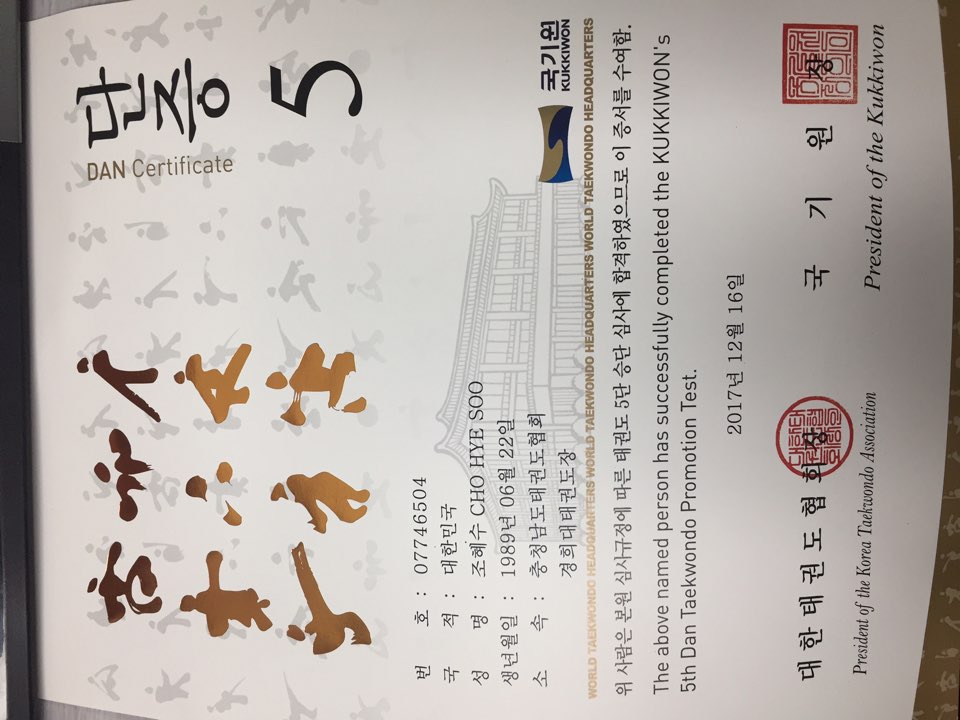 단증
DAN Certificate
5
번 호 : 07746504
국 적 : 대한민국
성 명 : 조혜수 CHO HYE SOO
생년월일 : 1989년 06월 22일
소 속 : 충청남도태권도협회
경희대태권도장
국기원
KUKKIWON
WORLD TAEKWONDO HEADQUARTERS WORLD TAEKWONDO HEADQUARTERS WORLD TAEKWONDO HEADQUARTERS WORLD TAEKWONDO HEADQUARTERS
위 사람은 본원 심사규정에 따른 태권도 5단 승단 심사에 합격하였으므로 이 증서를 수여함.
The above named person has successfully completed the KUKKIWON's
5th Dan Taekwondo Promotion Test.
2017년 12월 16일
대한태권도협회장
President of the Korea Taekwondo Association
국기원장
President of the Kukkiwon